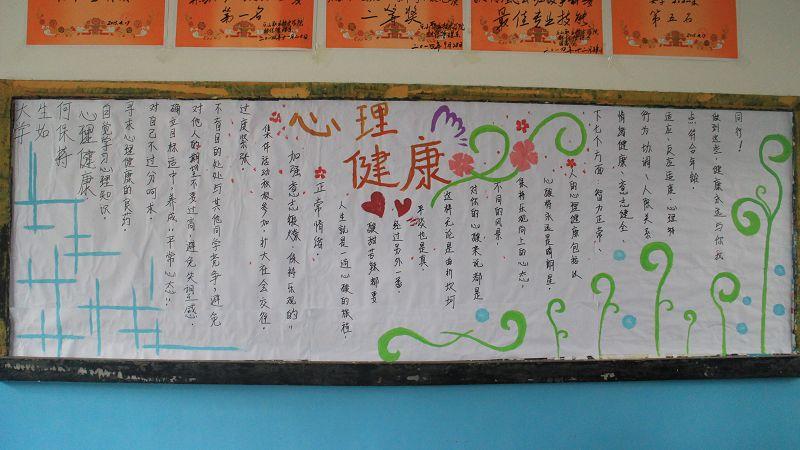 第一名
二等奖
最佳专业技能
第五名
心理
健康
大学
生如
何保持
心理健康
自觉学习心理知识。
寻求心理健康的良药
对自己不过分苛求。
确立目标适中,养成“平常心态”。
对他人的期望不要过高,避免失望感。
不盲目的处处与其他同学竞争,避免
过度紧张
集体活动积极参加,扩大社会交往。
加强意志锻炼,保持乐观的
正常情绪。
人生就是一道心酸的旅程,
酸甜苦辣都要
经过另外一番。
也是真
这样无论是曲折坎坷
对你的心酸来说都是
不同的风景。
保持乐观向上的心态,
心酸将永远是晴朗是。
人的心理健康包括以
下七个方面:智力正常、
情绪健康、意志健全、
行为协调、人际关系
适应、反应适度、心理特
点符合年龄。
做到这些,健康永远与你我
同行!